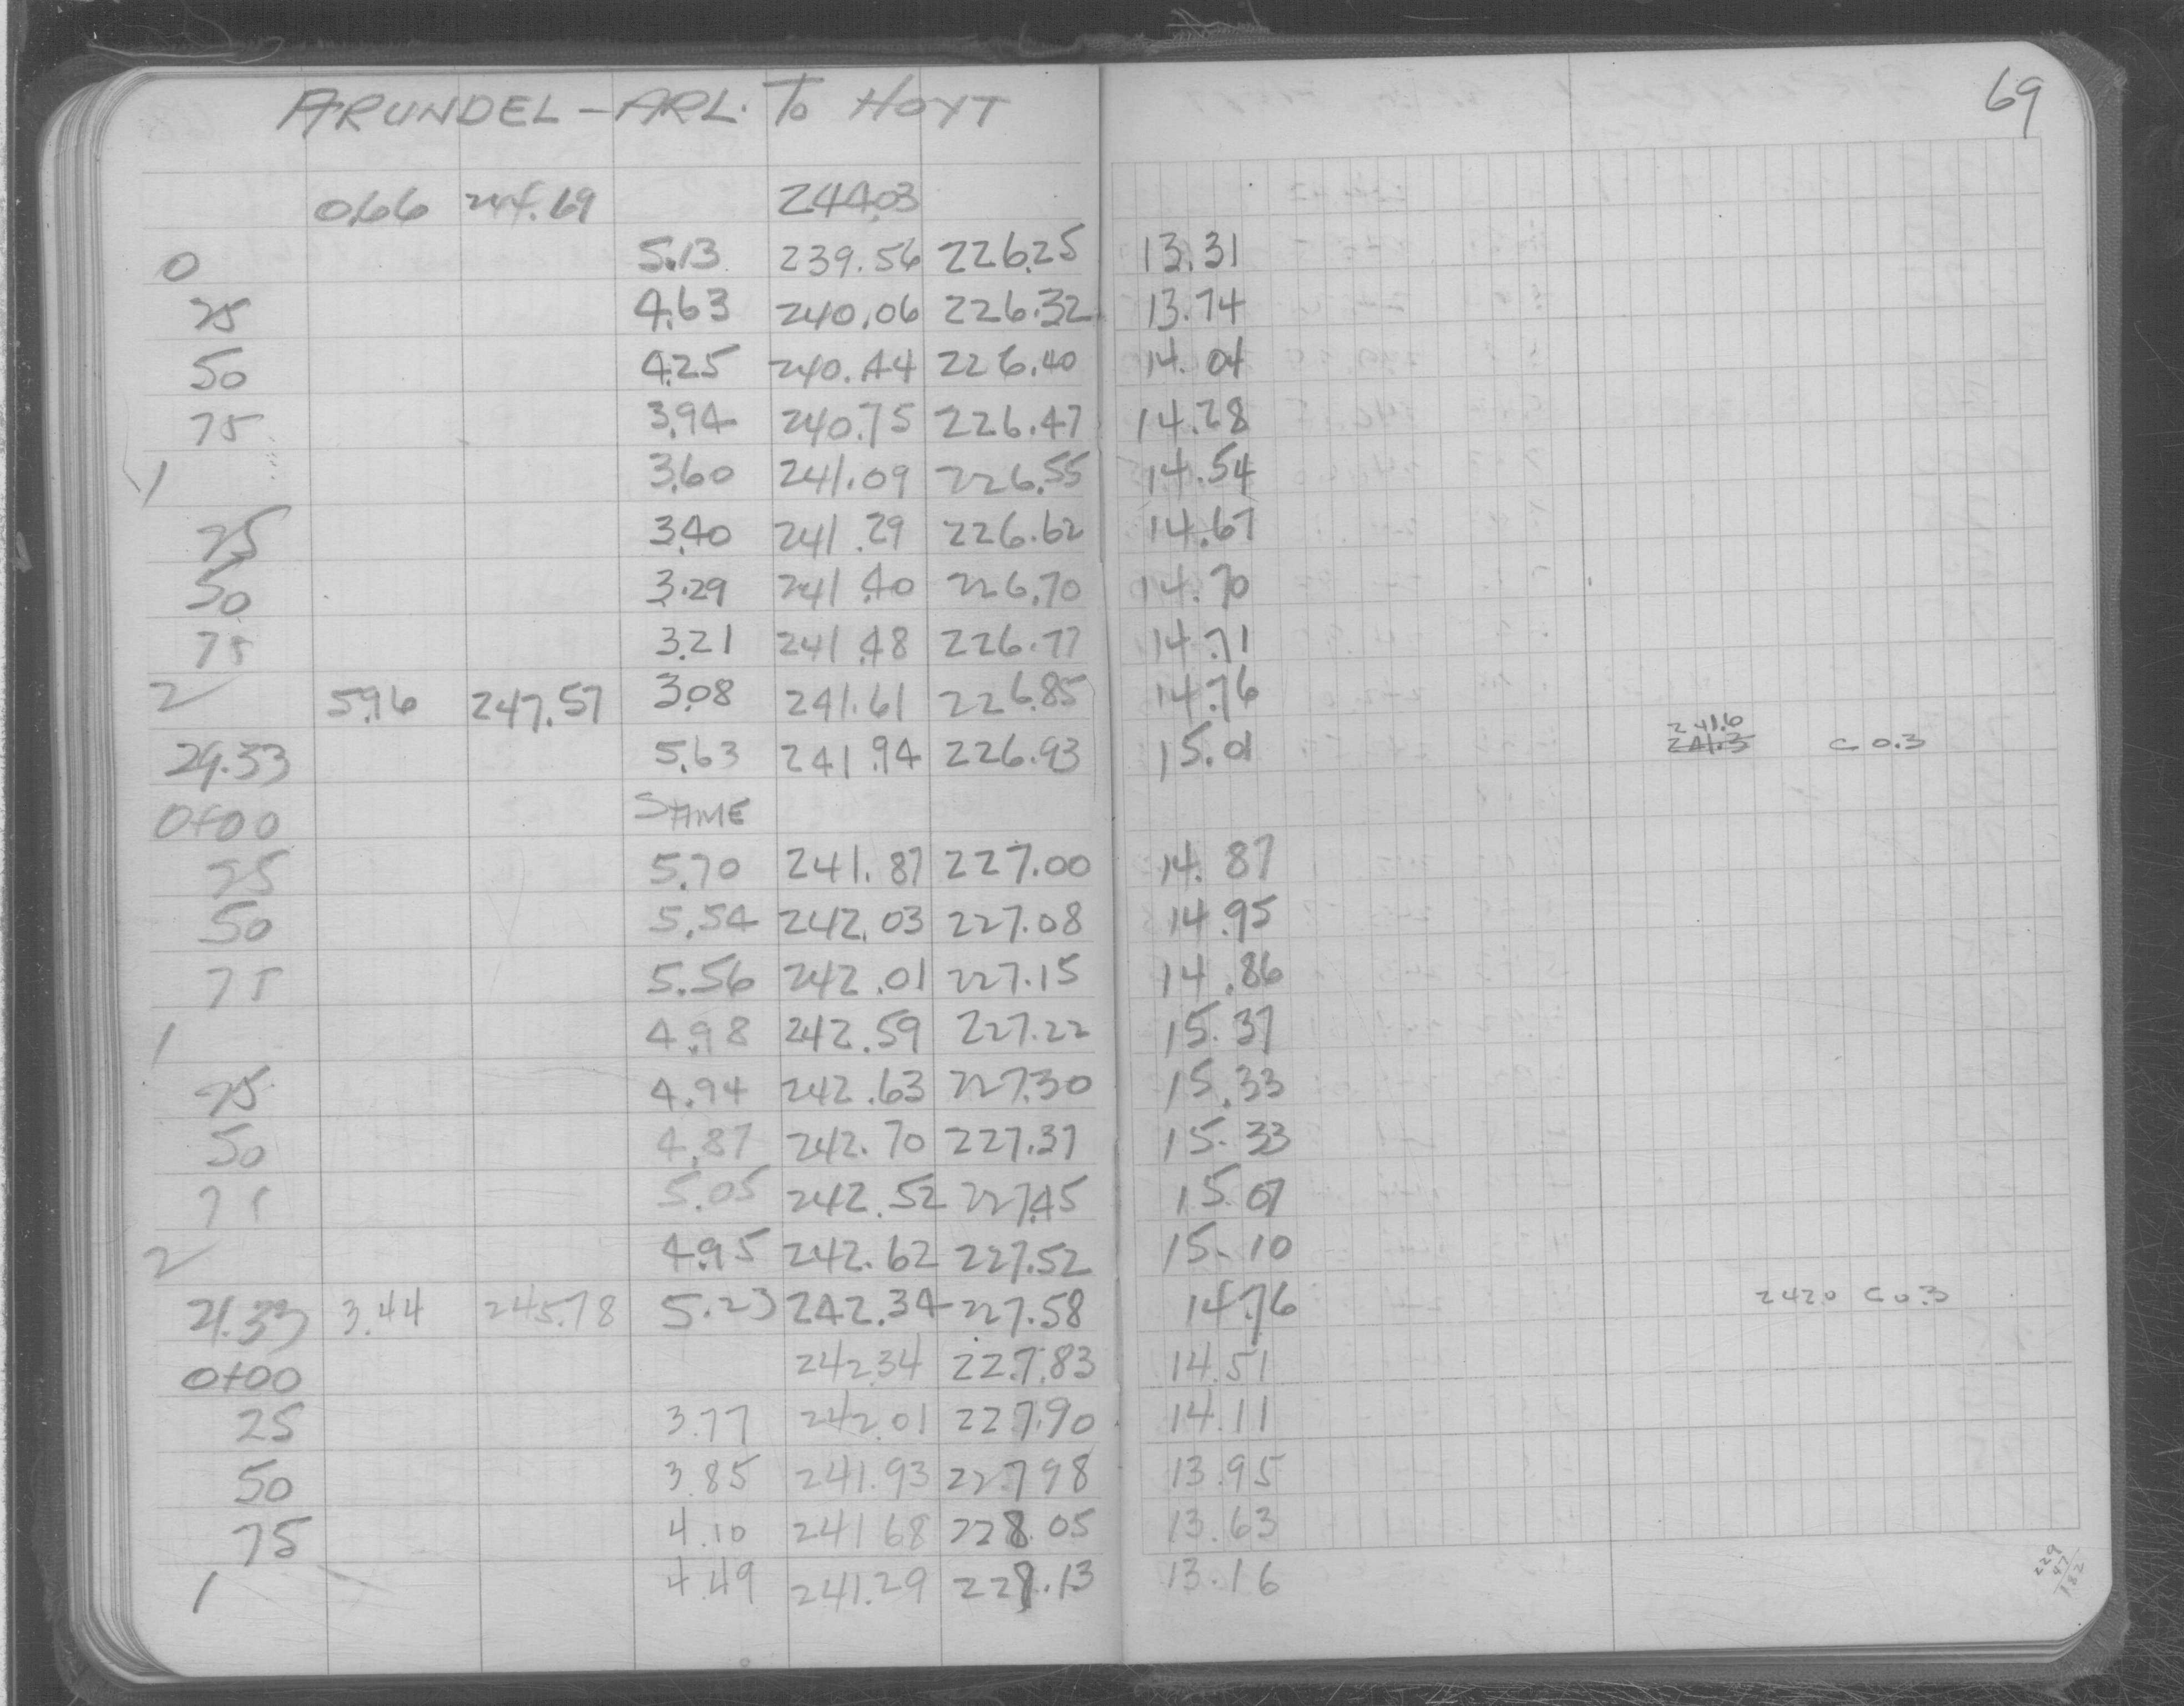 69
ARUNDEL - ARL. To HOYT
0.66 244.69 244.03
0 5.13 239.56 226.25 13.31
25 4.63 240.06 226.32 13.74
50 4.25 240.44 226.40 14.04
75 3.94 240.75 226.47 14.28
1 3.60 241.09 226.55 14.54
25 3.40 241.29 226.62 14.67
50 3.29 241.40 226.70 14.70
75 3.21 241.48 226.77 14.71
2 5.96 247.57 3.08 241.61 226.85 14.76
241.6
29.33 5.63 241.94 226.93 15.01 241.3 C 0.3
0+00 SAME
25 5.70 241.87 227.00 14.87
50 5.54 242.03 227.08 14.95
75 5.56 242.01 227.15 14.86
1 4.98 242.59 227.22 15.37
25 4.94 242.63 227.30 15.33
50 4.87 242.70 227.37 15.33
75 5.05 242.52 227.45 15.07
2 4.95 242.62 227.52 15.10
21.33 3.44 245.78 5.23 242.34 227.58 14.76 242.0 C 0.3
0+00 242.34 227.83 14.51
25 3.77 242.01 227.90 14.11
50 3.85 241.93 227.98 13.95
75 4.10 241.68 228.05 13.63
1 4.49 241.29 228.13 13.16
229
47
182